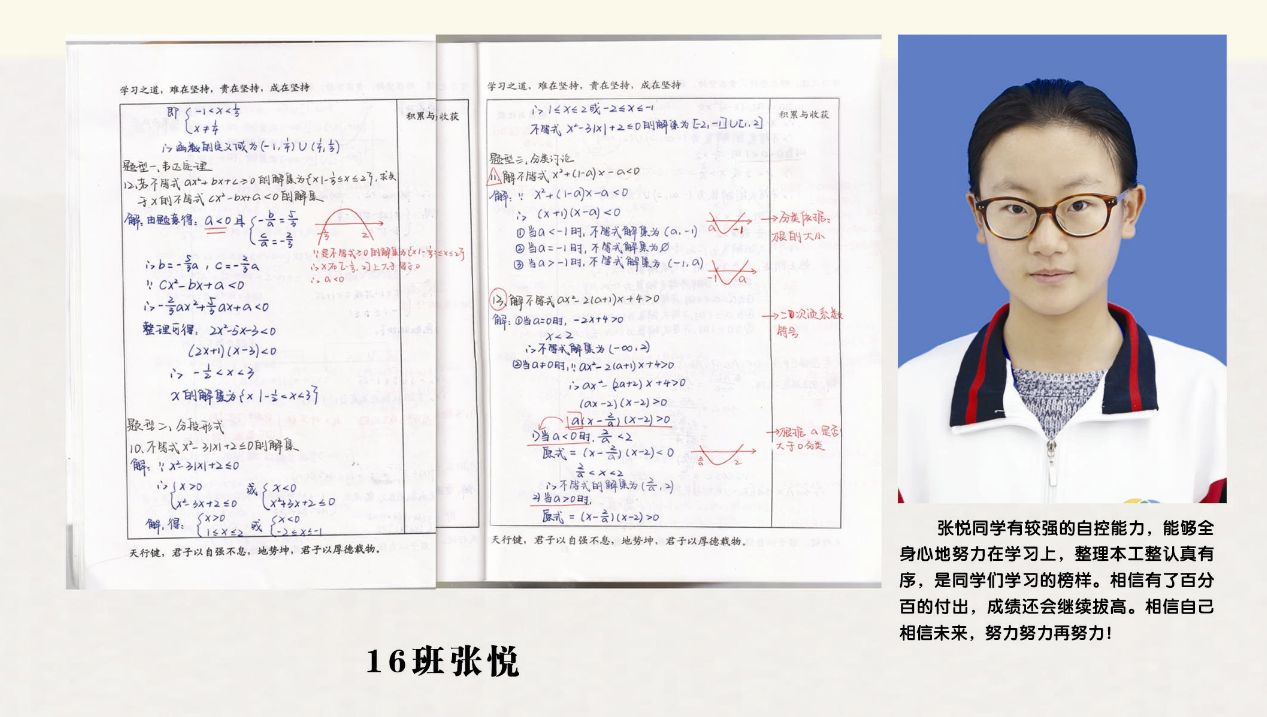 学习之道，难在坚持，贵在坚持，成在坚持
积累与收获
即 { -1<x<1/3
x≠1/4
∴函数的定义域为(-1,1/4)∪(1/4,1/3)
题型一、韦达定理
12.若不等式ax²+bx+c≥0的解集为{x|-1/3≤x≤2},求关
于x的不等式cx²-bx+a<0的解集
解:由题意得: a<0 且 { -b/a=5/3
c/a=-2/3
-1/3 2
∴b=-5/3a , c=-2/3a
∵cx²-bx+a<0
∴-2/3ax²+5/3ax+a<0
整理可得, 2x²-5x-3<0
(2x+1)(x-3)<0
∴ -1/2<x<3
x的解集为{x|-1/2<x<3}
∴a<0
题型二、分段形式
10.不等式x²-3|x|+2≤0的解集
解:∵x²-3|x|+2≤0
∴{ x>0 或 { x<0
x²-3x+2≤0 x²+3x+2≤0
解,得: { x>0 或 { x<0
1≤x≤2 -2≤x≤-1
天行健，君子以自强不息，地势坤，君子以厚德载物。
学习之道，难在坚持，贵在坚持，成在坚持
积累与收获
∴1≤x≤2或-2≤x≤-1
不等式x²-3|x|+2≤0的解集为[-2,-1]∪[1,2]
题型三,分类讨论
11.解不等式x²+(1-a)x-a<0
解:∵x²+(1-a)x-a<0
∴(x+1)(x-a)<0
①当a<-1时,不等式解集为(a,-1)
②当a=-1时,不等式解集为∅
③当a>-1时,不等式解集为(-1,a)
a -1
-1 a
→分类依据:
根的大小
13.解不等式ax²-2(a+1)x+4>0
解:①当a=0时, -2x+4>0
x<2
∴不等式解集为(-∞,2)
②当a≠0时,∵ax²-2(a+1)x+4>0
∴ax²-(2a+2)x+4>0
(ax-2)(x-2)>0
a(x-2/a)(x-2)>0
1)当a<0时, 2/a<2
原式=(x-2/a)(x-2)<0
2/a<x<2
∴不等式的解集为(2/a,2)
2)当a>0时,
原式=(x-2/a)(x-2)>0
→二次项系数
符号
2/a 2
→根据a是否
大于0分类
天行健，君子以自强不息，地势坤，君子以厚德载物。
张悦同学有较强的自控能力，能够全
身心地努力在学习上，整理本工整认真有
序，是同学们学习的榜样。相信有了百分
百的付出，成绩还会继续拔高。相信自己
相信未来，努力努力再努力！
16班张悦